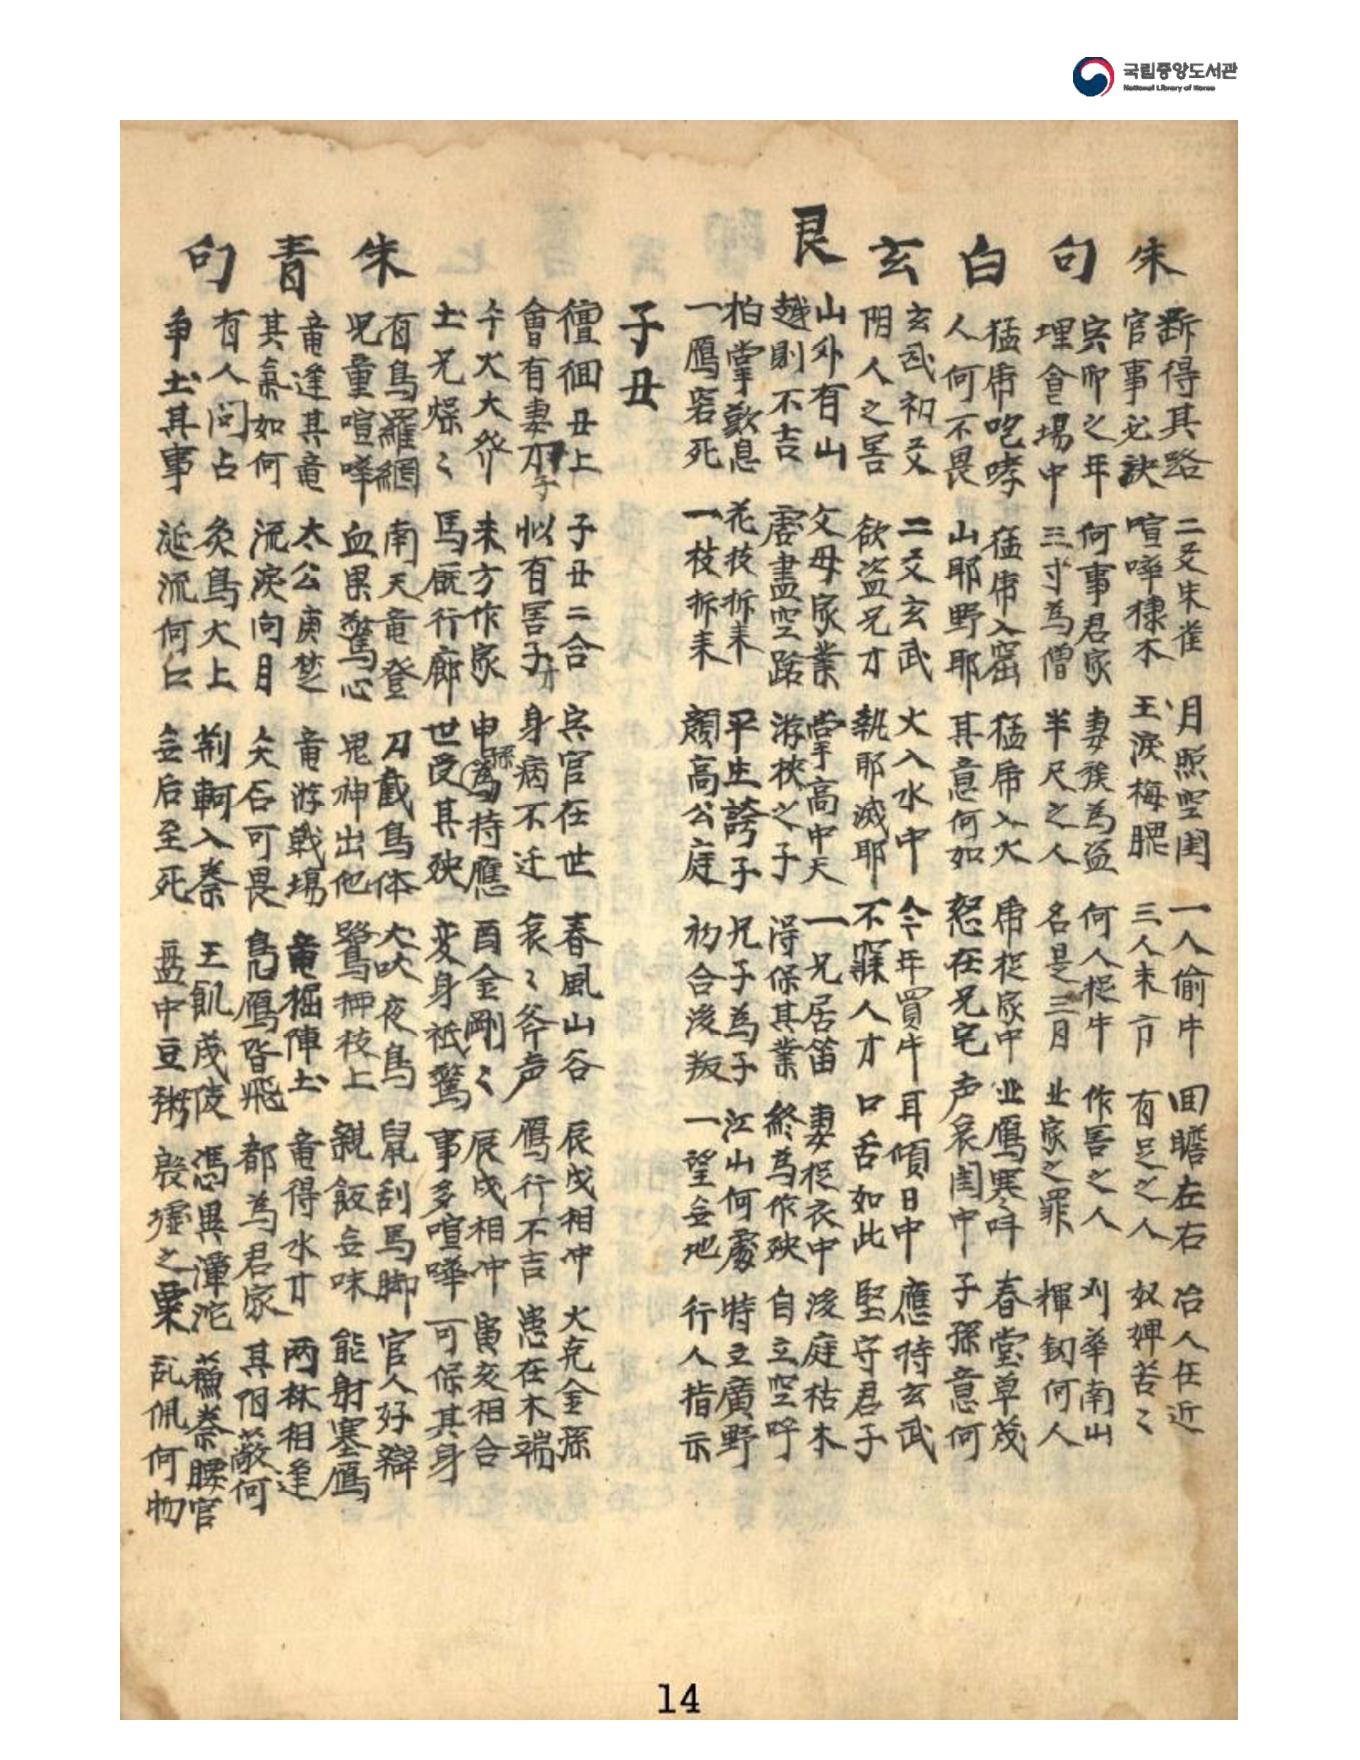 국립중앙도서관
National Library of Korea
朱
斷得其路 二爻朱雀 月照空閨 一人偷牛 回瞻左右 冶人在近
官事必訣 喧嘩棣木 王淚梅腮 三人末市 有足之人 奴婢苦〻
句
寅卯之年 何事君家 妻簇為盜 何人捉牛 作吾之人 刘華南山
埋會場中 三寸為僧 半尺之人 名是三月 业家之罪 揮釰何人
白
猛席咆哮 猛席入窟 猛席入火 席捉家中 业鴈寒呌 春堂草茂
人何不畏 山耶野耶 其意何如 怒在兄宅 声哀閨中 子孫意何
玄
玄武初爻 二爻玄武 火入水中 今年買牛 耳傾日中 應待玄武
阴人之害 欲盜兄才 執耶滅耶 不寐人才 口舌如此 堅守君子
艮
山外有山 父母家業 堂高中天 一兄居笛 妻捉衣中 後庭枯木
越則不吉 處盡空踞 游挾之子 得保其業 終為作殃 自立空呼
柏掌歎息 花枝折来 平生誇子 兄子為子 江山何處 特立廣野
一鴈窘死 一枝折来 顔高公庭 初合後叛 一望無地 行人指示
子丑
徊丑上 子丑二合 兵官在世 春風山谷 辰戌相冲 火克金孫
會有妻才子 似有害子才 身病不迁 哀〻斧声 鴈行不吉 患在木端
午火大發 未方作家 申為孫持應 酉金剛〻 辰戌相冲 寅亥相合
土兄燥〻 馬厩行廊 世受其殃 変身祇驚 事多喧嘩 可保其身
朱
有鳥羅網 南天竜登 刀截鳥体 犬吠夜鳥 鼠刮馬脚 官人好辯
児童喧嘩 血果驚心 鬼神出他 鷺栖枝上 親飯無味 能射塞鴈
青
竜逢其竜 太公庚楚 竜游戦場 竜掘陣土 竜得水才 两林相逢
其氣如何 流淚向月 矢石可畏 鳥鴈皆飛 都為君家 其何敵何
句
有人问占 灸鳥大上 荆軻入秦 王飢茂陵 馮異潭沱 蘓秦腰官
争土其事 延流何亡 無后至死 盃中豆粥 殷墟之粟 乱佩何物
14